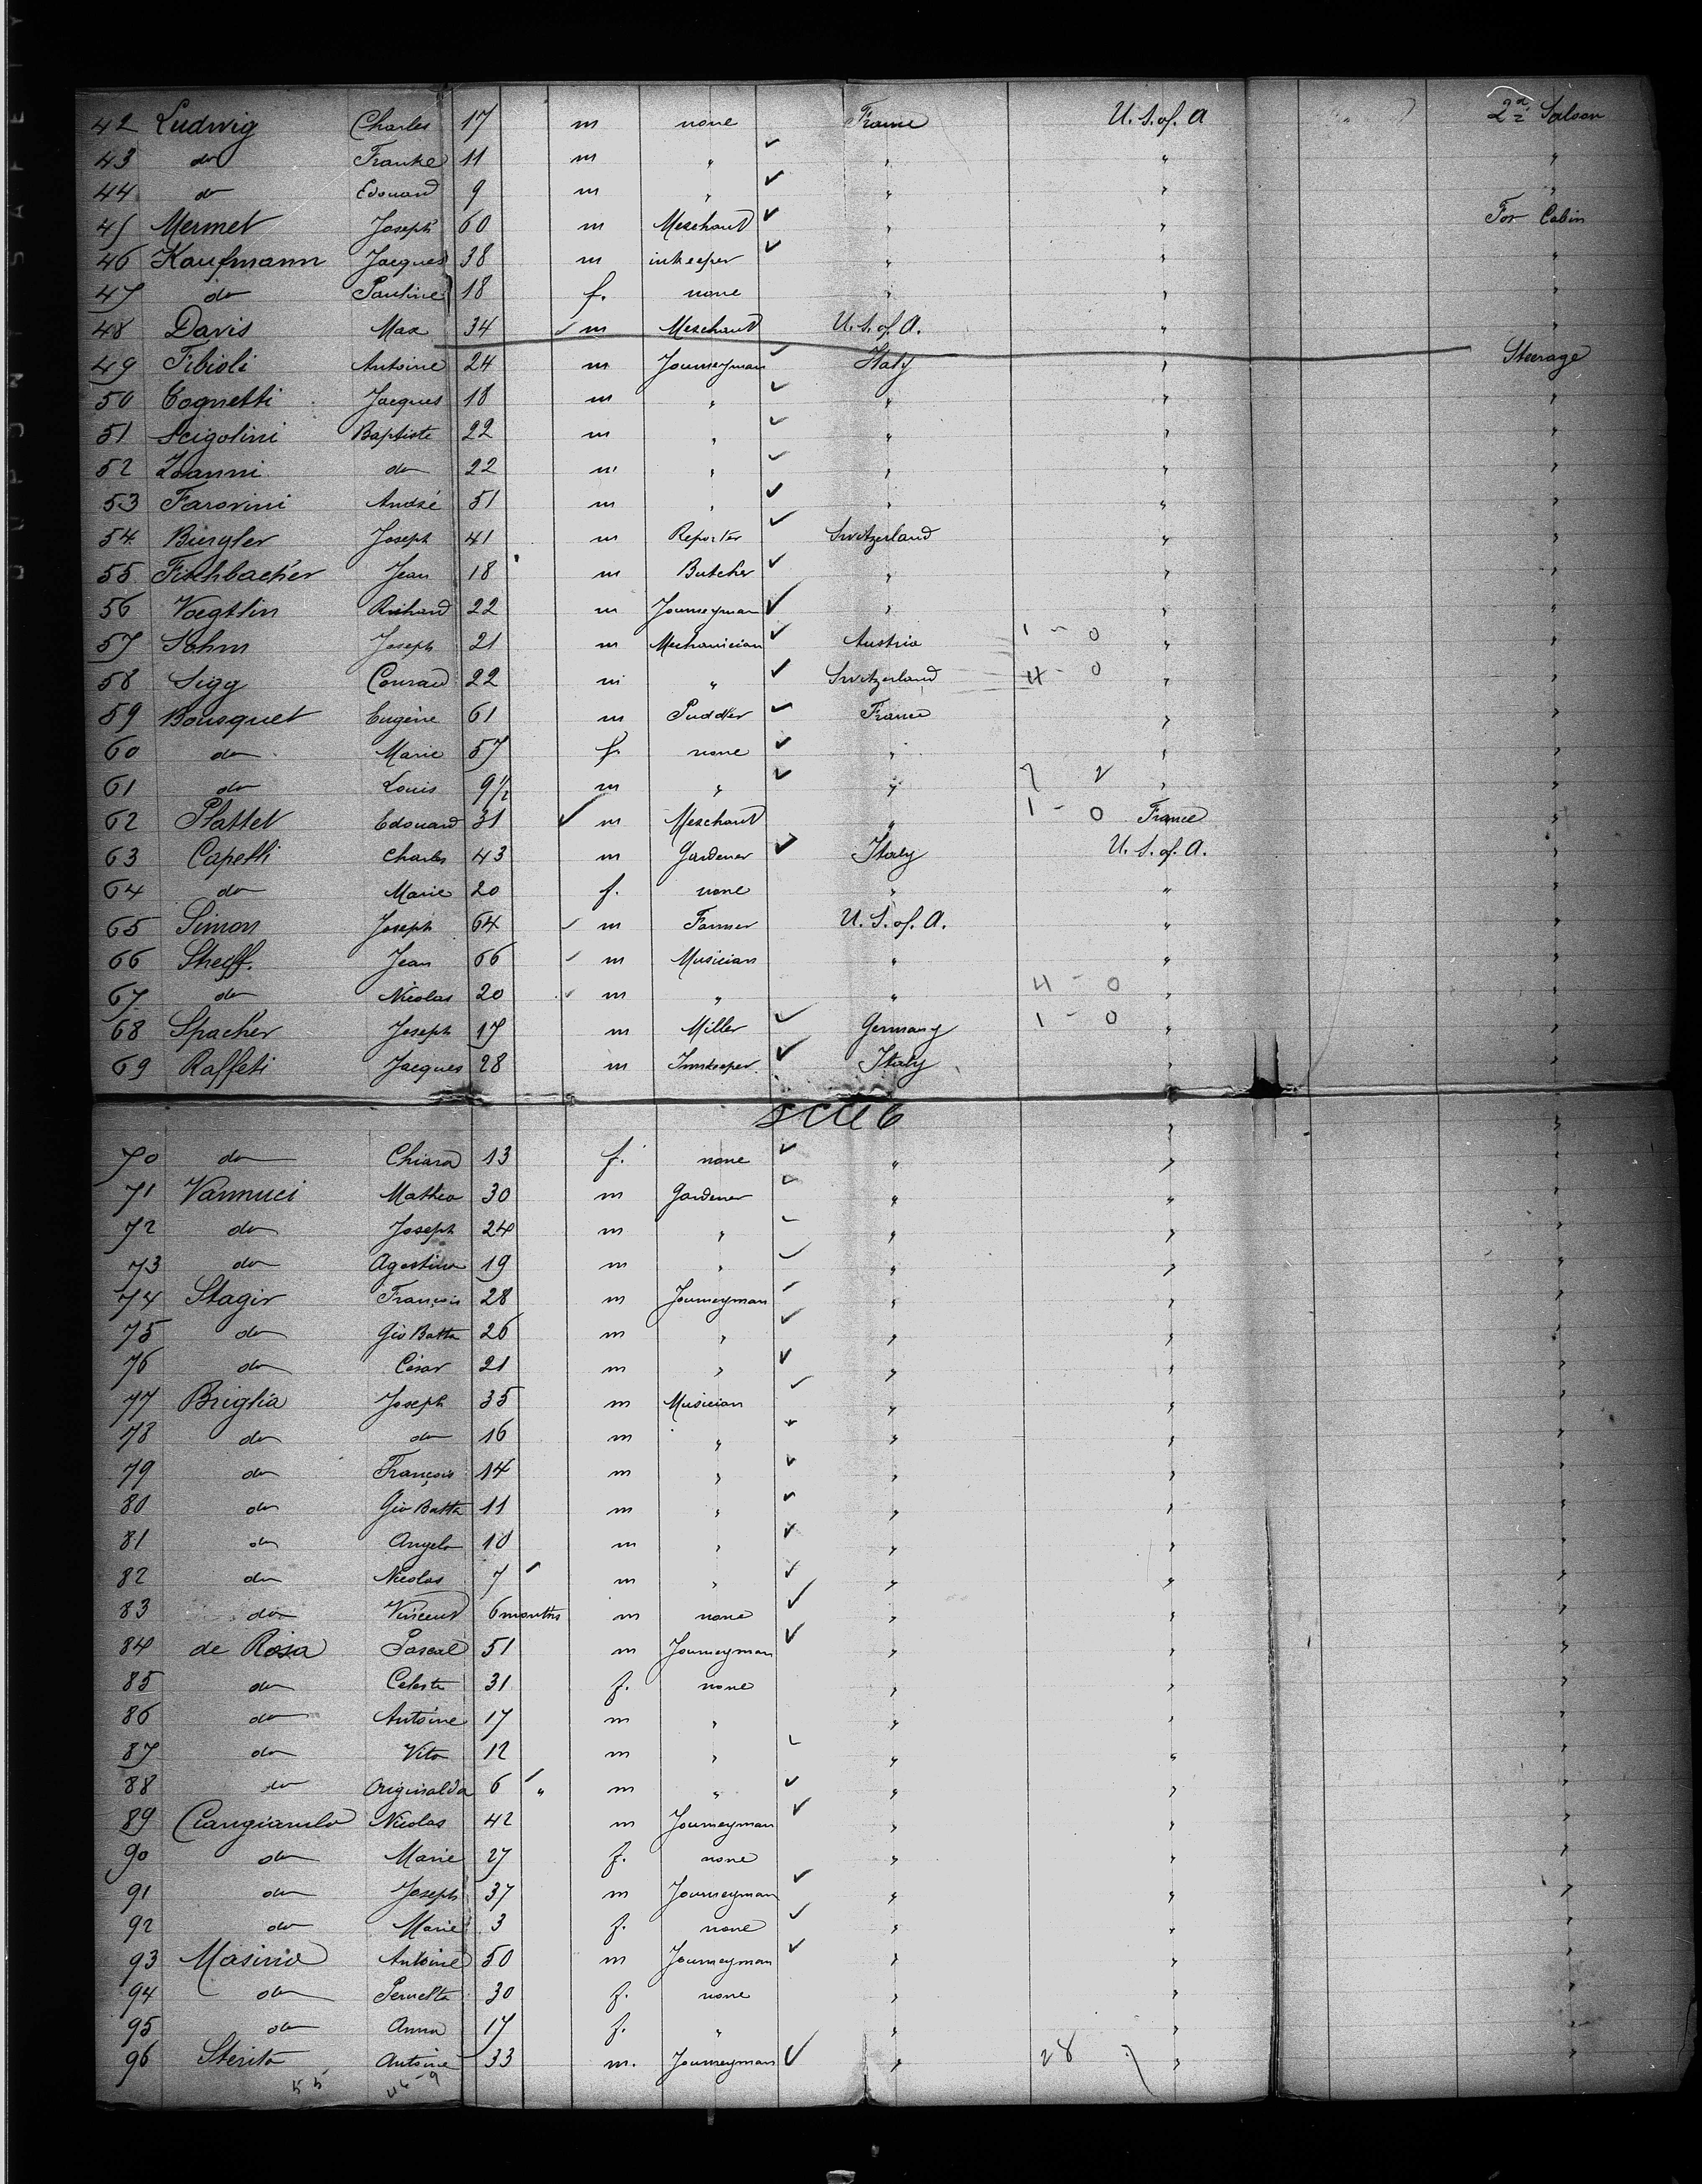 42 Ludwig Charles 17 m none France U.S. of A 2d Saloon
43 do Franke 11 m " " " "
44 do Edouard 9 m " " " "
45 Mermet Joseph 60 m Merchant " " For Cabin
46 Kaufmann Jacques 38 m inkeeper " " "
47 do Pauline 18 f. none " " "
48 Davis Max 34 m Merchant U.S. of A. " "
49 Tibioli Antoine 24 m Journeyman Italy " Steerage
50 Cognetti Jacques 18 m " " " "
51 Scigolini Baptiste 22 m " " " "
52 Zoanni do 22 m " " " "
53 Farovini André 51 m " " " "
54 Buergler Joseph 41 m Reporter Switzerland " "
55 Fischbacher Jean 18 m Butcher " " "
56 Voegtlin Richard 22 m Journeyman " " "
57 Sohm Joseph 21 m Mechanician Austria 1 - 0 " "
58 Sigg Conrad 22 m " Switzerland 4 - 0 " "
59 Bousquet Eugène 61 m Puddler France " "
60 do Marie 57 f. none " " "
61 do Louis 9 1/2 m " " " "
62 Plattet Edouard 31 m Merchant " 1 - 0 France "
63 Capelli Charles 43 m Gardener Italy U.S. of A. "
64 do Marie 20 f. none " " "
65 Simon Joseph 64 m Farmer U.S. of A. " "
66 Sheff. Jean 66 m Musician " " "
67 do Nicolas 20 m " " 4 - 0 " "
68 Spacher Joseph 17 m Miller Germany 1 - 0 " "
69 Raffeti Jacques 28 m Innkeeper Italy " "
70 do Chiara 13 f. none " " "
71 Vannuci Matheo 30 m Gardener " " "
72 do Joseph 24 m " " " "
73 do Agostino 19 m " " " "
74 Stagir François 28 m Journeyman " " "
75 do Gio Batta 26 m " " " "
76 do César 21 m " " " "
77 Briglia Joseph 35 m Musician " " "
78 do do 16 m " " " "
79 do François 14 m " " " "
80 do Gio Batta 11 m " " " "
81 do Angelo 10 m " " " "
82 do Nicolas 7 m " " " "
83 do Vincent 6 months m none " " "
84 de Rosa Pascal 51 m Journeyman " " "
85 do Celeste 31 f. none " " "
86 do Antoine 17 m " " " "
87 do Vito 12 m " " " "
88 do Originalda 6 " m " " " "
89 Cangiamilo Nicolas 42 m Journeyman " " "
90 do Marie 27 f. none " " "
91 do Joseph 37 m Journeyman " " "
92 do Marie 3 f. none " " "
93 Masinio Antoine 50 m Journeyman " " "
94 do Pernetta 30 f. none " " "
95 do Anna 17 f. " " " "
96 Sterito Antoine 33 m. Journeyman " 28 " "
55 46-9